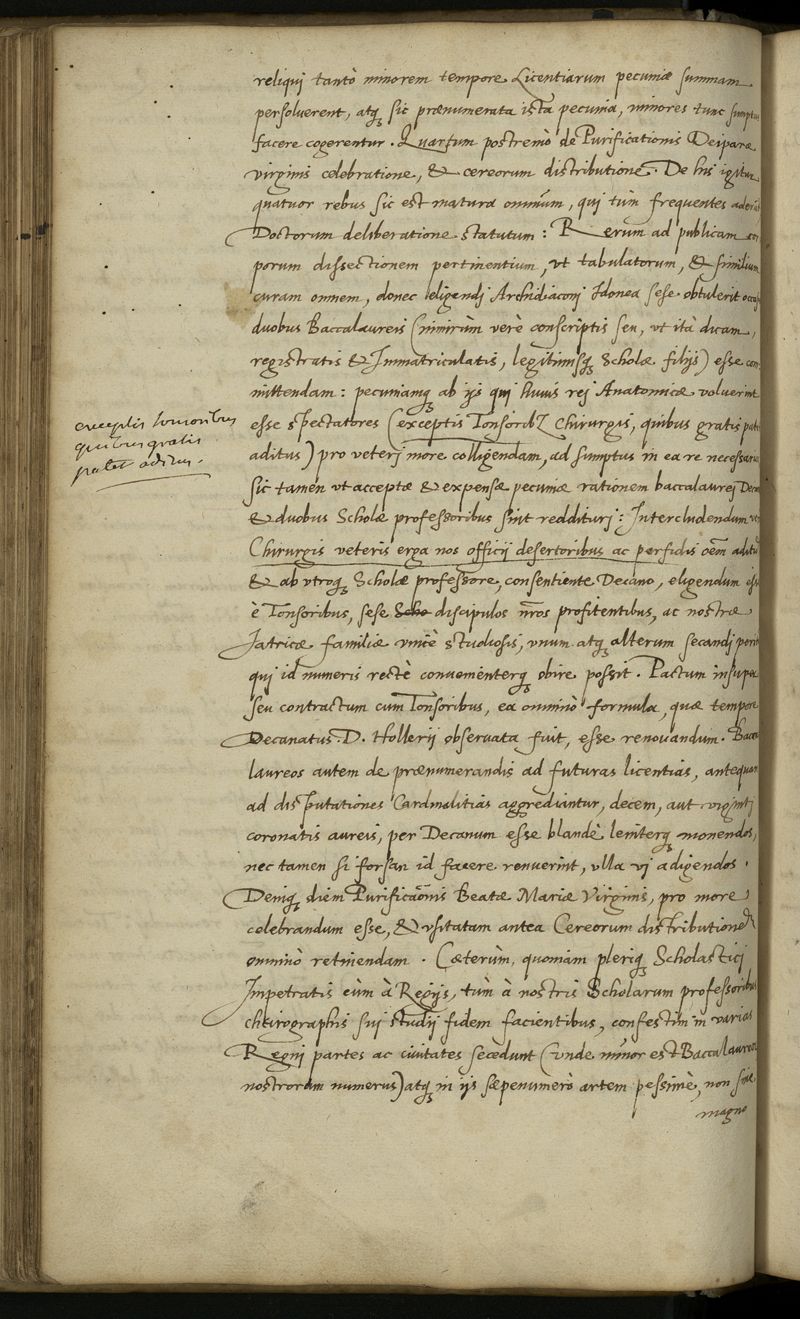 reliqui tantò minorem tempore Licentiarum pecuniæ summam
persoluerent, atq; sic prænumerata ista pecunia, minores tunc sumptus
facere cogerentur. Quartum postremò de Purificationis Deiparæ
virginis celebratione, & cereorum distributione. De his igitur
quatuor rebus sic est matura omnium, qui tùm frequentes aderāt
Doctorum deliberatione statutum: Rerum ad publicam cor
porum dissectionem pertinentium, vt tabulatorum, & similium
curam omnem, donec eligendi Archidiaconi Idonea sese obtulerit occasio
duobus Baccalaureis (nimirùm verè conscriptis seu, vt ità dicam,
registratis & Immatriculatis, legitimisq; Scholæ filijs) esse com
mittendam: pecuniamq; ab ijs qui huius rei Anatomicæ voluerint
esse spectatores (exceptis Tonsorib; Chirurgis, quibus gratis patet
aditus) pro veteri more colligendam, ad sumptus in ea re necessarios
sic tamen vt acceptæ & expensæ pecuniæ rationem baccalaurej Decano
& duobus Scholæ professoribus sint redditurj: Intercludendum
Chirurgis veteris erga nos officij desertoribus ac perfidis oēm aditū
& ab vtroq; Scholæ professore, consentiente Decano, eligendum
è Tonsoribus, sese Scho discipulos nr̄os profitentibus, ac nostræ
Iatricæ familiæ vnicè studiosis, vnum atq; alterum secandj peritū
quj id numeris rectè conuenienterq; obire possit. Pactum insuper
seu contractum cum Tonsoribus, ea omninò formula, quæ tempore
Decanatus D. Hollerij obseruata fuit, esse renouandum. Bacca
laureos autem de prænumerandis ad futuras licentias, antequam
ad disputationes Cardinalitias aggrediantur, decem, aut vigintj
coronatis aureis, per Decanum esse blandè leniterq; monendos,
nec tamen si forsan id facere renuerint, vlla vj adigendos.
Deniq; diem Purificaōnis Beatæ Mariæ Virginis, pro more
celebrandum esse, & vsitatam antea Cereorum distributionem
omninò retinendam. Cæterùm, quoniam pleriq; Scholasticj
Impetratis cùm à Regijs, tùm à nostris Scholarum professoribus
chirographis suj studij fidem facientibus, confestim in varias
Regni partes ac ciuitates secedunt (vnde minor est Baccalaureorū
nostrorum numerus) atq; in ijs sæpenumerò artem pessimè, non sine
magno
exceptis tonsoribus
quibus gratis
patet aditus.